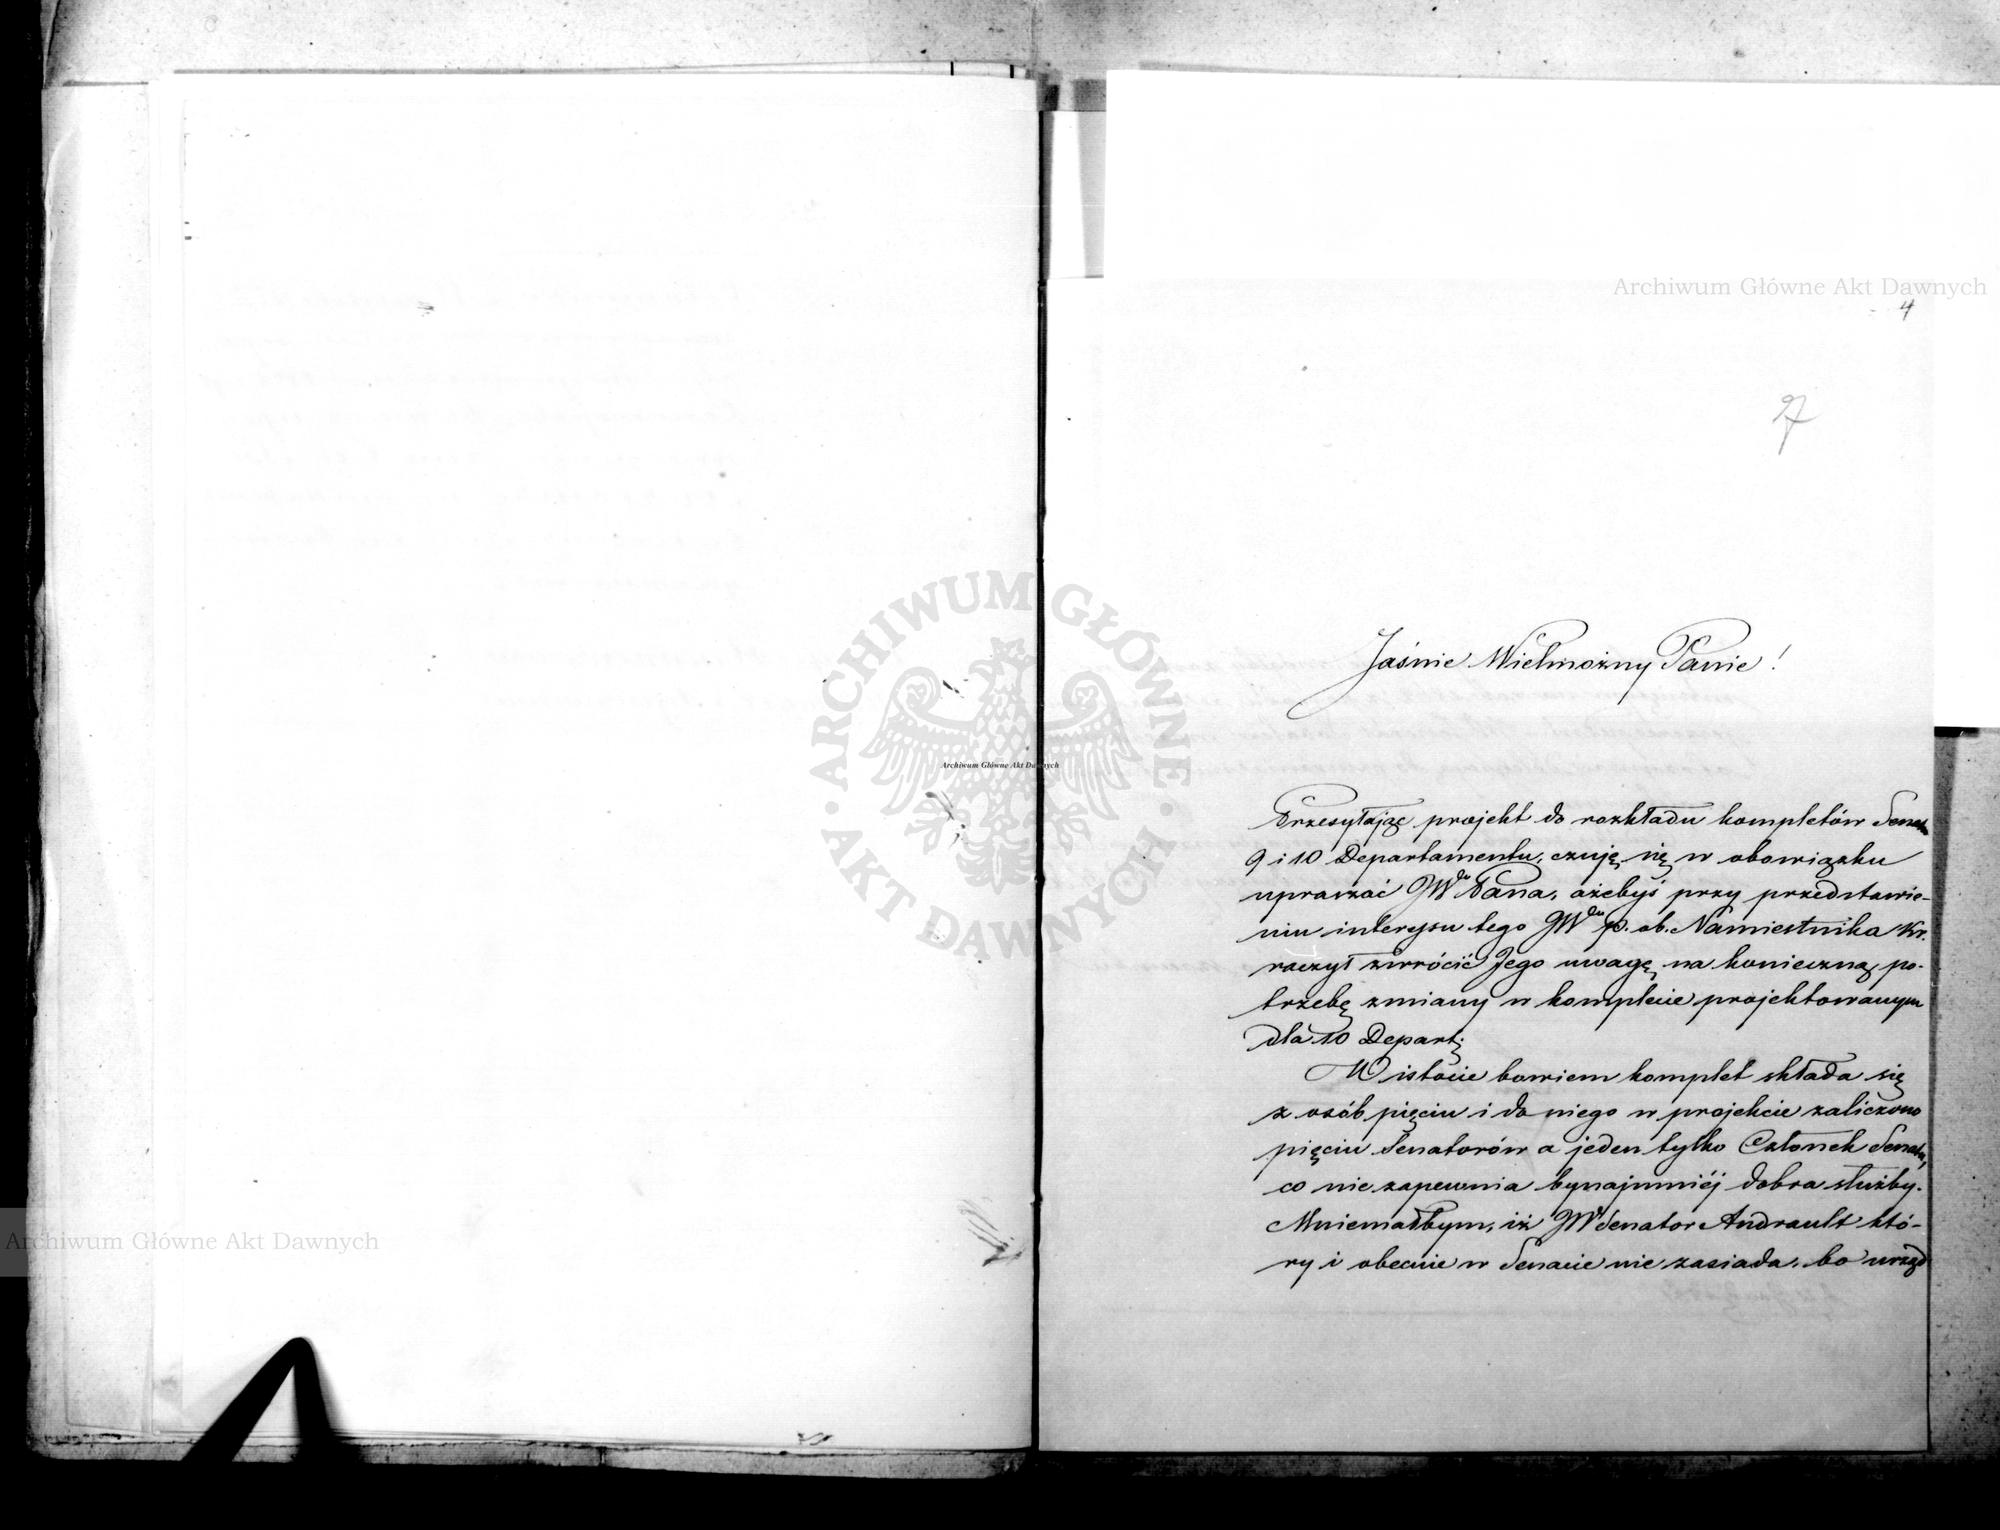 Archiwum Główne Akt Dawnych
4
27
Jaśnie Wielmożny Panie!
Przesyłając projekt do rozkładu kompletów Senatu
9 i 10 Departamentu, czuję się w obowiązku
upraszać JW Pana, ażebyś przy przedstawie-
niu interesu tego JW p. ob. Namiestnika Kr.
raczył zwrócić Jego uwagę na konieczną po-
trzebę zmiany w komplecie projektowanym
dla 10 Depart:
W istocie bowiem komplet składa się
z osób pięciu i do niego w projekcie zaliczono
pięciu Senatorów a jeden tylko Członek Senatu,
co nie zapewnia bynajmniéj dobra służby.
Mniemałbym, iż JW Senator Andrault któ-
ry i obecnie w Senacie nie zasiada, bo urząd
ARCHIWUM GŁÓWNE AKT DAWNYCH
Archiwum Główne Akt Dawnych
Archiwum Główne Akt Dawnych